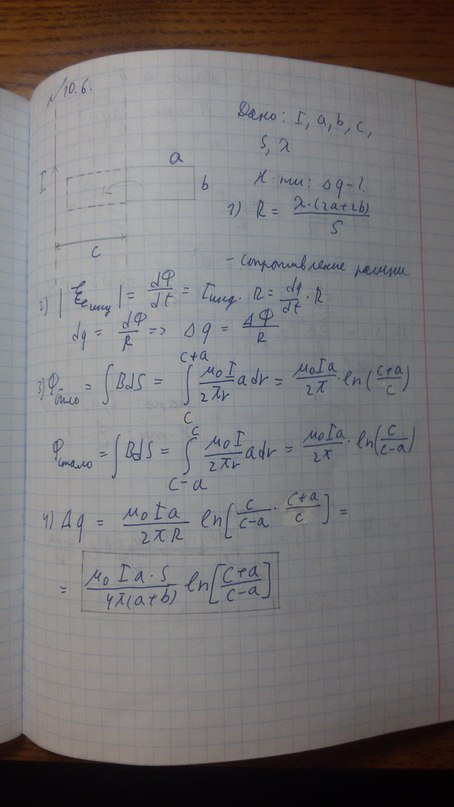 №10.6.
Дано: I, a, b, c,
S, λ
Н-ти: Δq-?
I
a
b
c
1) R = λ·(2a+2b)/S
- сопротивление рамки
2) |Ɛинд| = dΦ/dt = Iинд. R = dq/dt · R
dq = dΦ/R => Δq = ΔΦ/R
3) Φбыло = ∫BdS = ∫_c^{c+a} μ₀I/2πr a dr = μ₀Ia/2π · ln((c+a)/c)
Φстало = ∫BdS = ∫_{c-a}^c μ₀I/2πr a dr = μ₀Ia/2π · ln(c/(c-a))
4) Δq = μ₀Ia/2πR ln[c/(c-a) · (c+a)/c] =
= μ₀Ia·S/4π(a+b) ln[(c+a)/(c-a)]